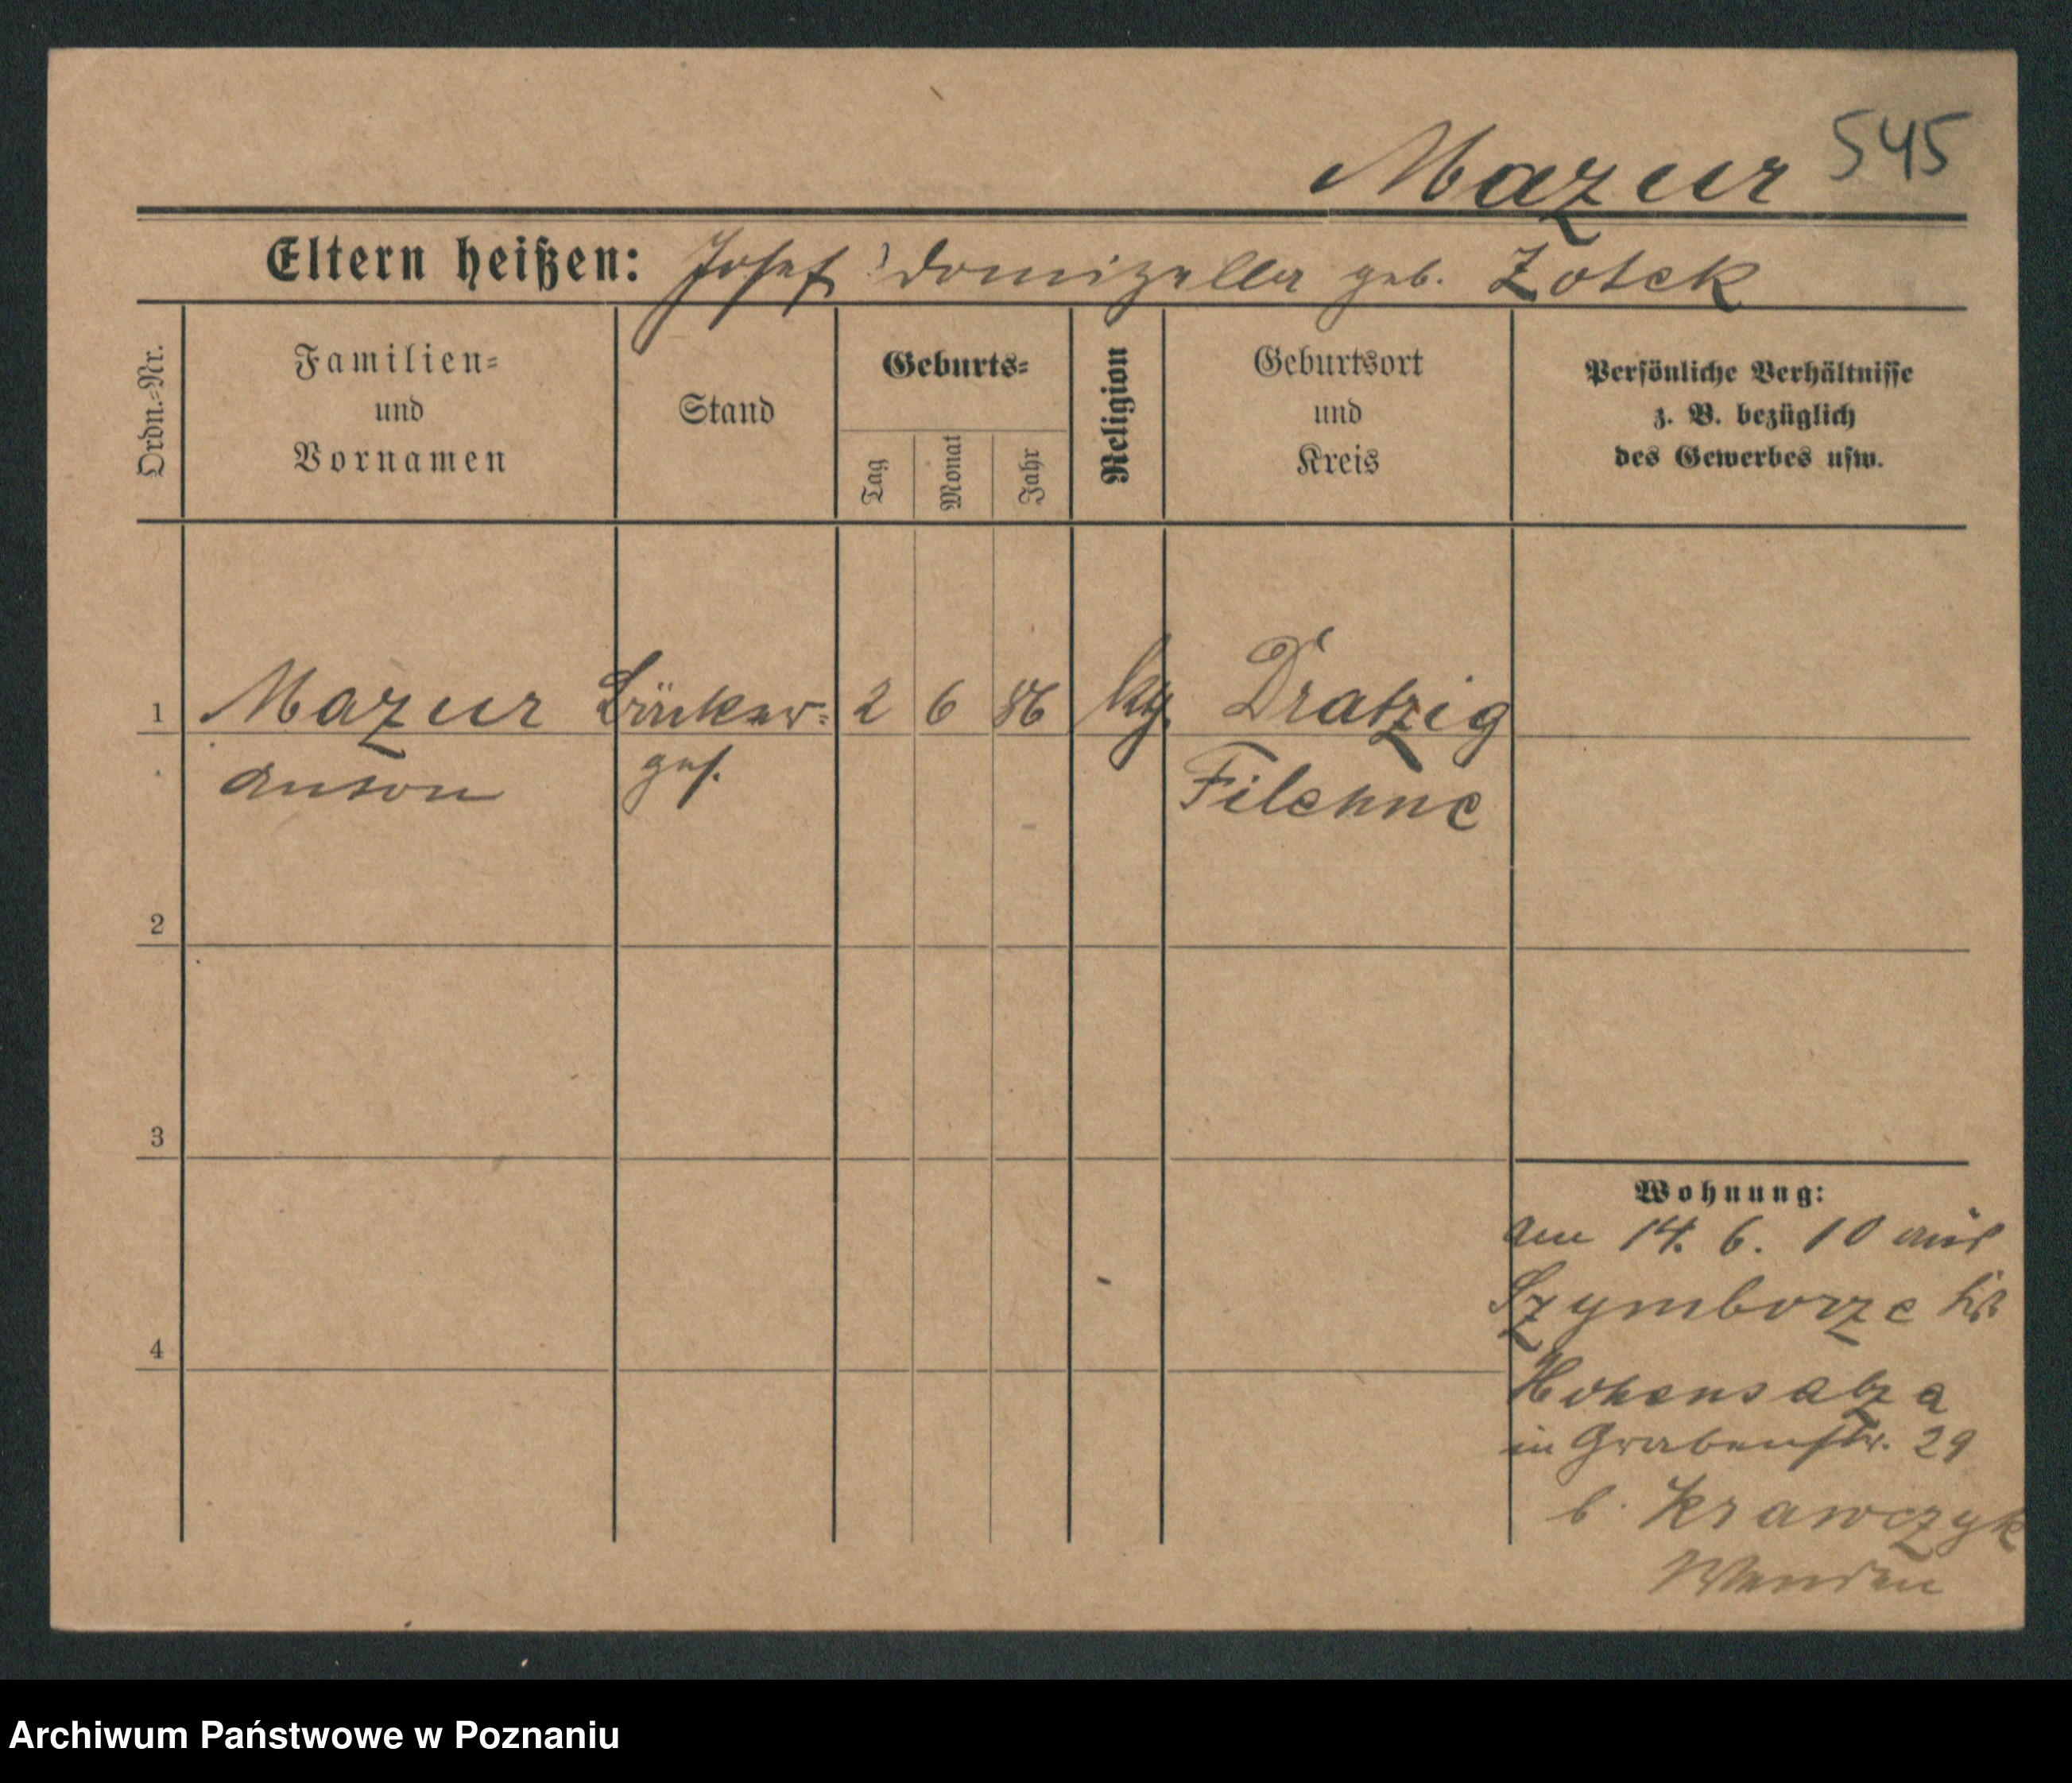 Mazur 545
Eltern heißen: Josef Domizella geb. Zotek
Ordn.=Nr.
Familien=
und
Vornamen
Stand
Geburts=
Tag
Monat
Jahr
Religion
Geburtsort
und
Kreis
Persönliche Verhältnisse
z. B. bezüglich
des Gewerbes usw.
1 Mazur Bäcker= 2 6 86 Dratzig
Anton ges. Filehne
2
3
4
Wohnung:
am 14. 6. 10 aus
Szymborze
Hohensalza
in Grabenstr. 29
b. Krawczyk